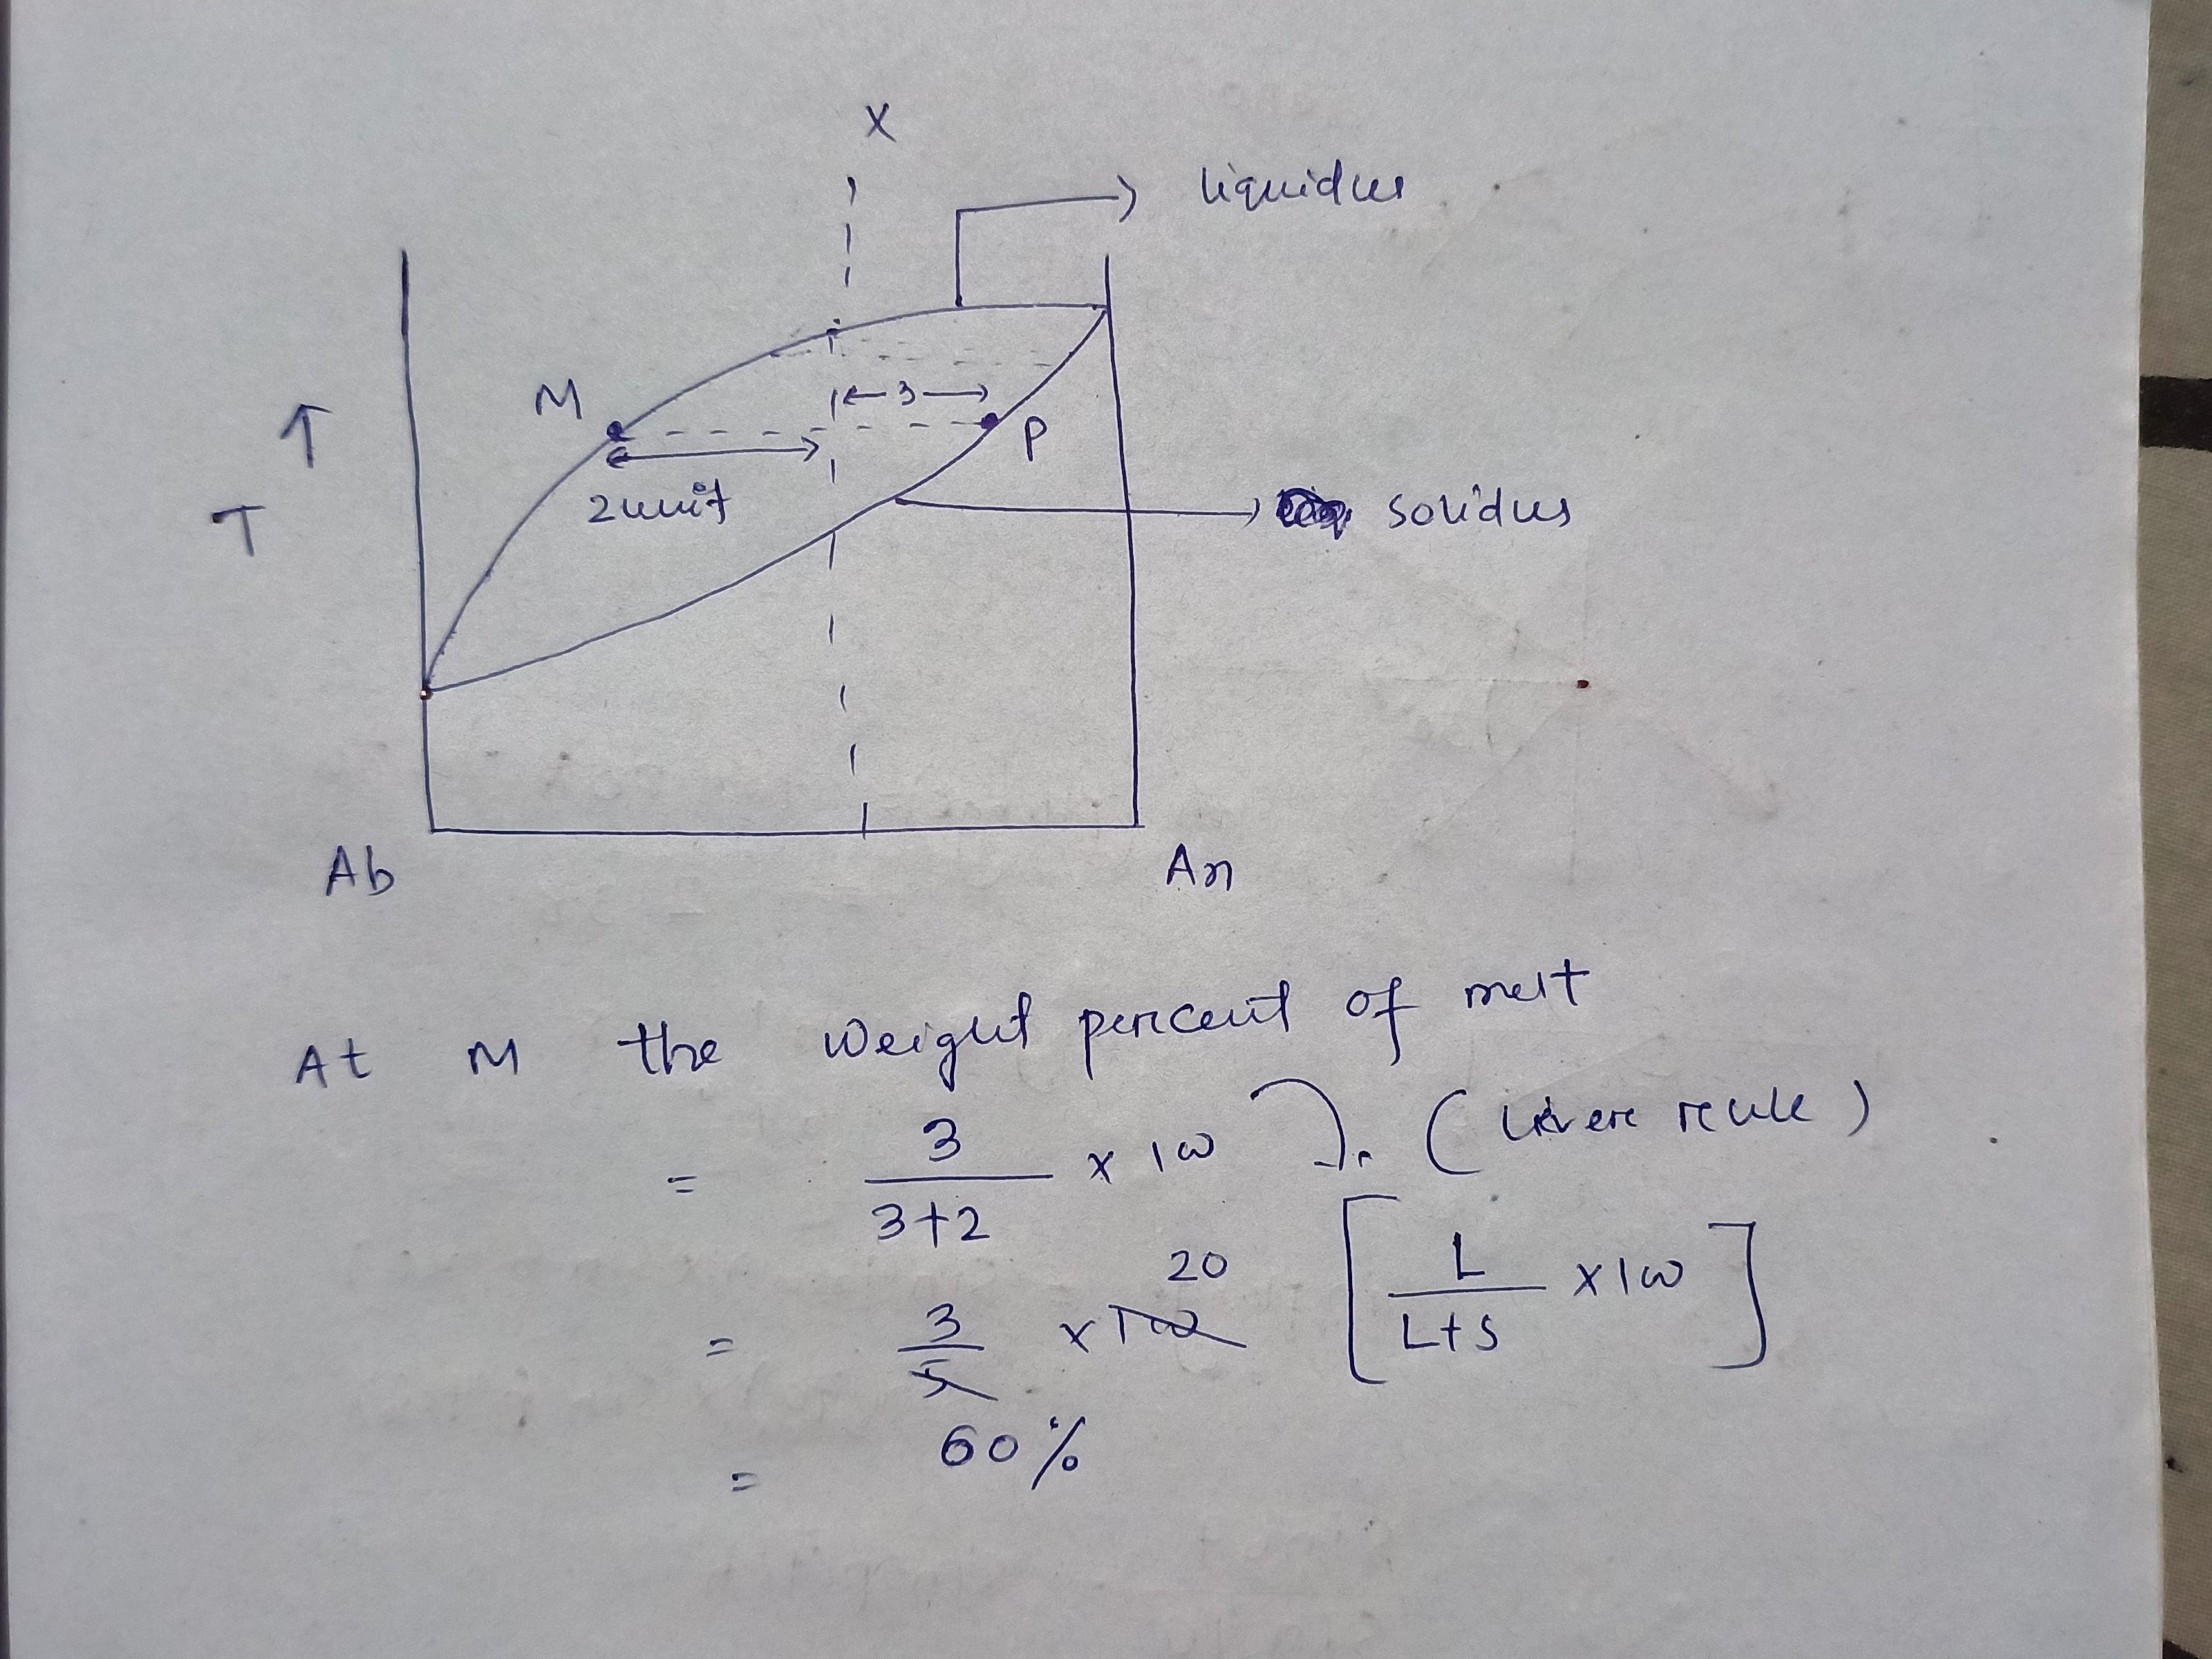 X
liquidus
M
3
P
↑
T
2 unit
solidus
Ab
An
At M the weight percent of melt
= 3 / 3+2 × 100 (Lever rule)
= 3 / 5 × 100 20 [ L / L+S × 100 ]
= 60%